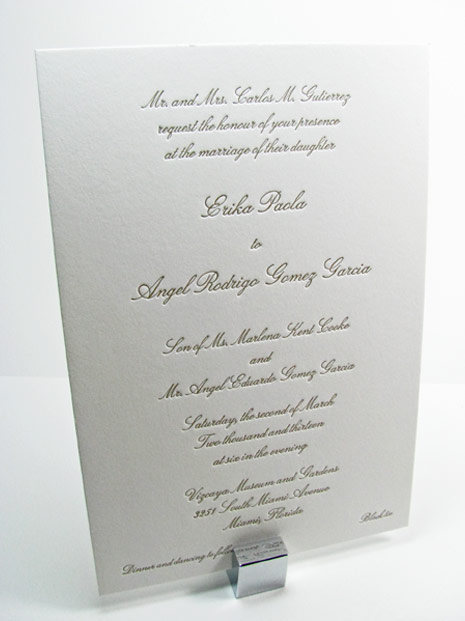 Mr. and Mrs. Carlos M. Gutierrez
request the honour of your presence
at the marriage of their daughter
Erika Paola
to
Angel Rodrigo Gomez Garcia
Son of Ms. Marlena Kent Cooke
and
Mr. Angel Eduardo Gomez Garcia
Saturday, the second of March
Two thousand and thirteen
at six in the evening
Vizcaya Museum and Gardens
3251 South Miami Avenue
Miami, Florida
Black tie
Dinner and dancing to